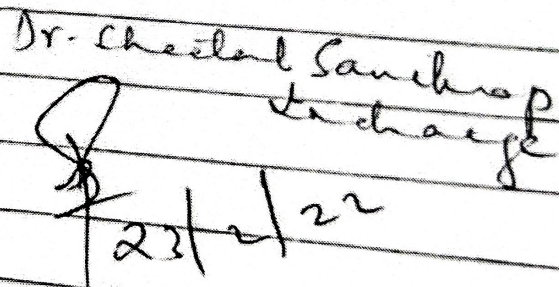 Dr. Sheetal Sanchrop
Incharge
23/2/22